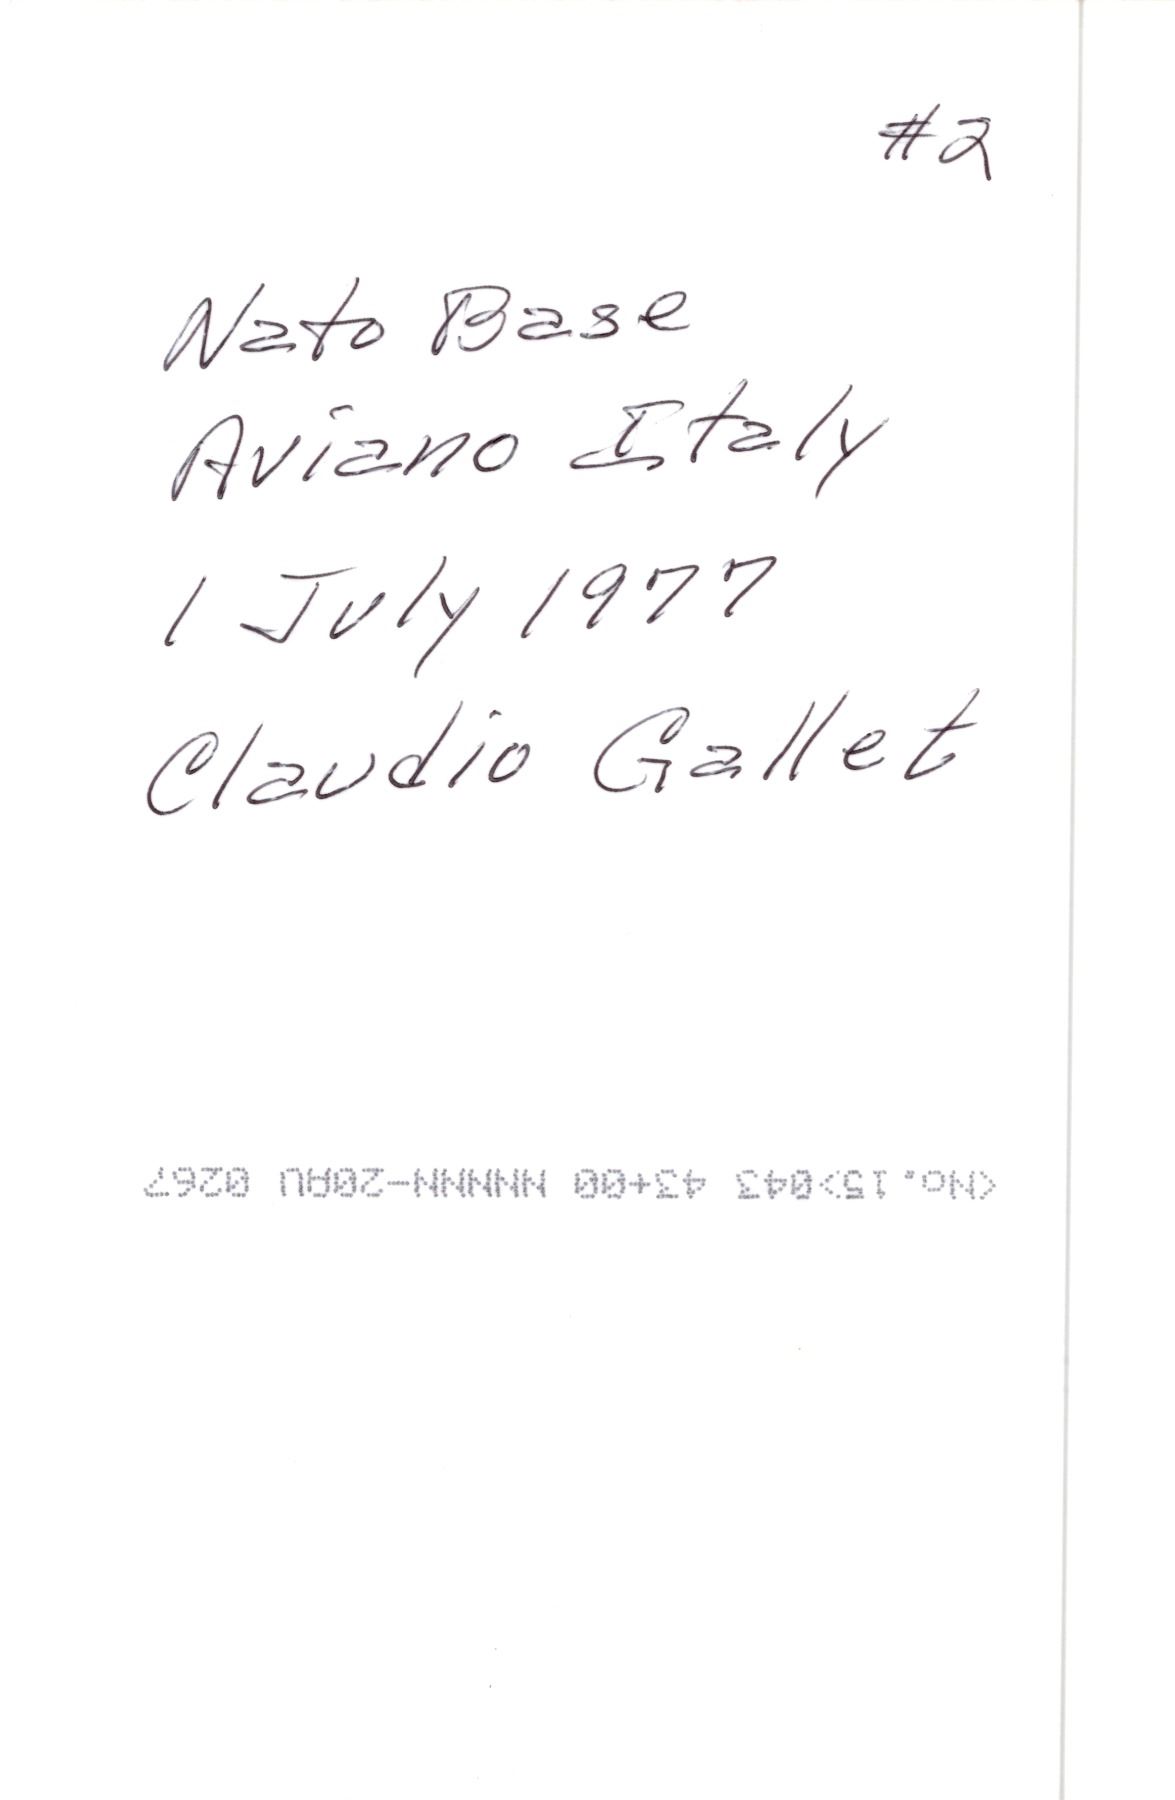 #2
Nato Base
Aviano Italy
1 July 1977
Claudio Gallet
<No.15>043 43+00 NNNNN-20AU 0267